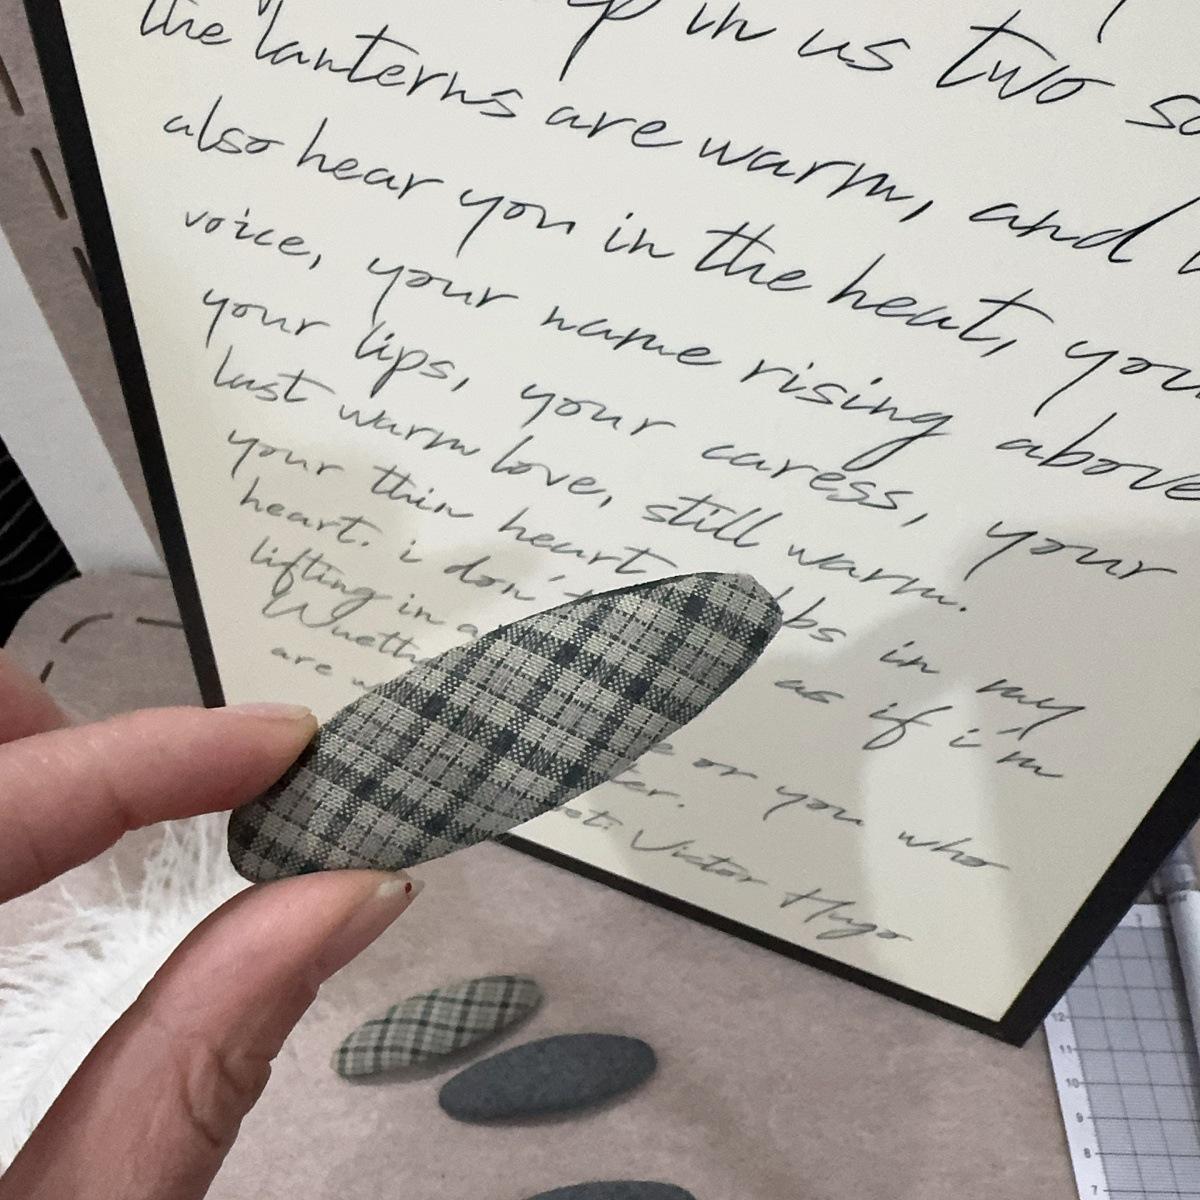 in us two so
the lanterns are warm, and
also hear you in the heat, your
voice, your name rising above
your lips, your caress, your
last warm love, still warm.
your thin heart bs in my
heart. i don't as if i'm
lifting in a e or you who
ter.
are ot: Victor Hugo
12
11
10
9
8
7